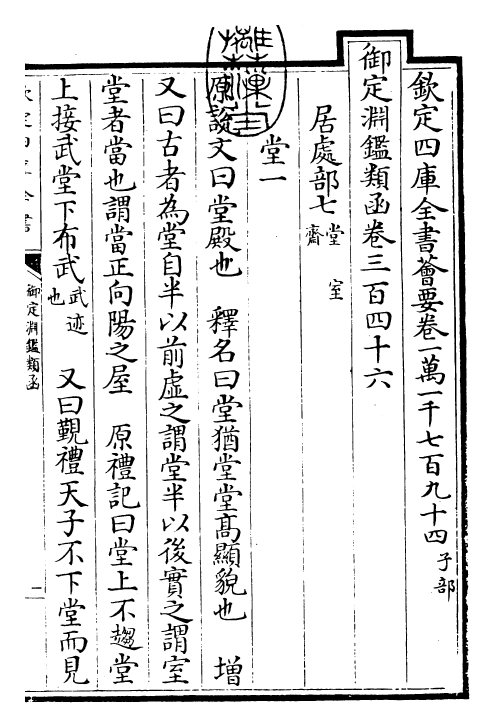 欽定四庫全書薈要卷一萬一千七百九十四子部
御定淵鑑類函卷三百四十六
居處部七堂 室 齋
堂一
原說文曰堂殿也 釋名曰堂猶堂堂高顯貌也 增
又曰古者為堂自半以前虛之謂堂半以後實之謂室
堂者當也謂當正向陽之屋 原禮記曰堂上不趨堂
上接武堂下布武武迹也 又曰覲禮天子不下堂而見
御定淵鑑類函
一